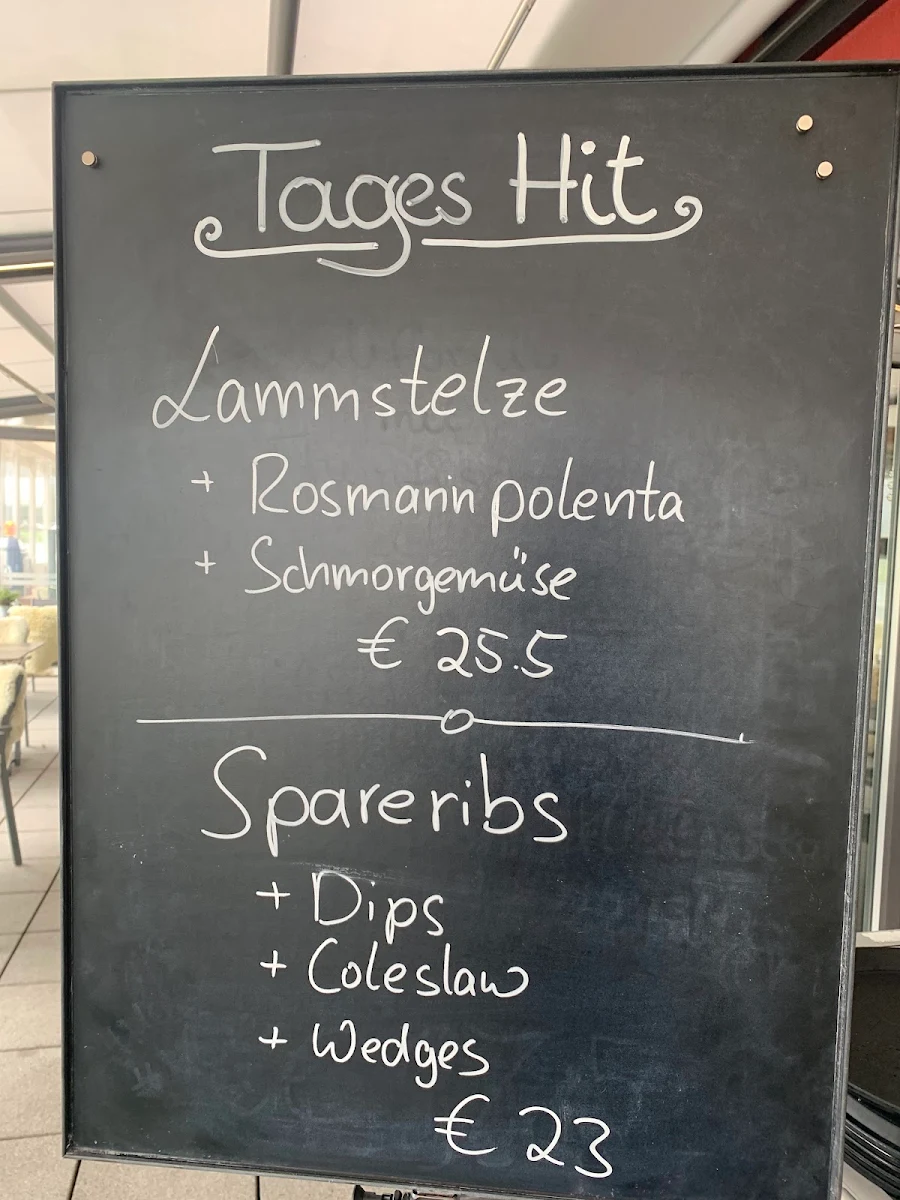 Tages Hit
Lammstelze
+ Rosmarin polenta
+ Schmorgemüse
€ 25.5
Spareribs
+ Dips
+ Coleslaw
+ Wedges
€ 23